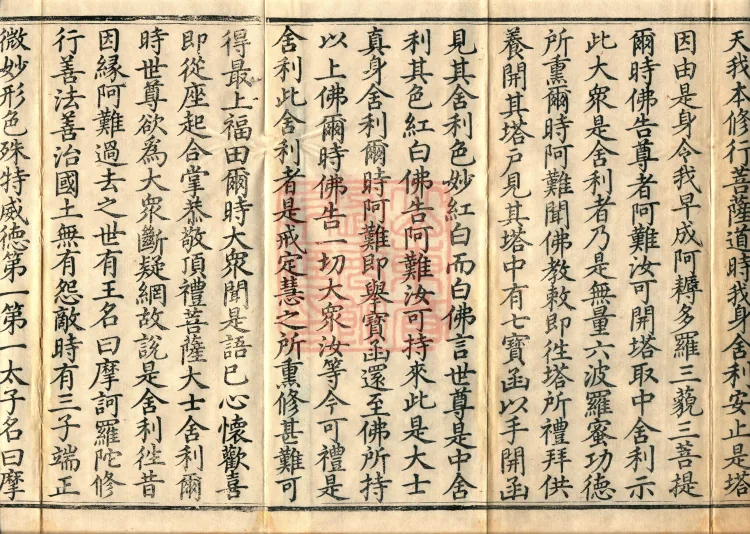 天我本修行菩薩道時我身舍利安止是塔
因由是身令我早成阿耨多羅三藐三菩提
爾時佛告尊者阿難汝可開塔取中舍利示
此大眾是舍利者乃是無量六波羅蜜功德
所熏爾時阿難聞佛教敕即往塔所禮拜供
養開其塔戶見其塔中有七寶函以手開函
見其舍利色妙紅白而白佛言世尊是中舍
利其色紅白佛告阿難汝可持來此是大士
真身舍利爾時阿難即舉寶函還至佛所持
以上佛爾時佛告一切大眾汝等今可禮是
舍利此舍利者是戒定慧之所熏修甚難可
得最上福田爾時大眾聞是語已心懷歡喜
即從座起合掌恭敬頂禮菩薩大士舍利爾
時世尊欲為大眾斷疑網故說是舍利往昔
因緣阿難過去之世有王名曰摩訶羅陀修
行善法善治國土無有怨敵時有三子端正
微妙形色殊特威德第一第一太子名曰摩